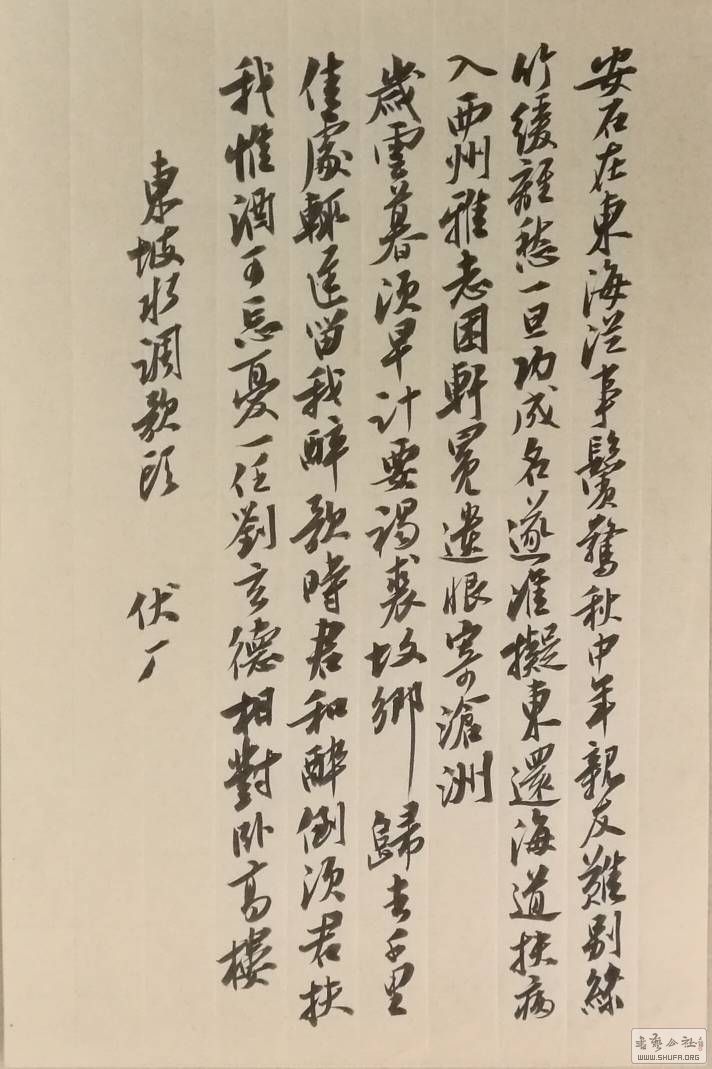 安石在東海從事鬢驚秋中年親友難別絲
竹緩離愁一旦功成名遂准擬東還海道扶病
入西州雅志困軒冕遺恨寄滄洲
歲雲暮須早計要褐裘故鄉歸去千里
佳處輒遲留我醉歌時君和醉倒須君扶
我惟酒可忘憂一任劉玄德相對臥高樓
東坡水調歌頭 伏
书艺公社
WWW.SHUFA.ORG